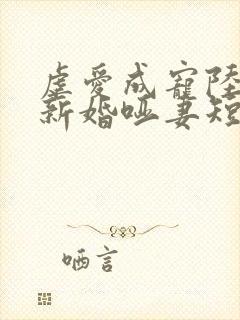 虐爱成宠陆
新婚哑妻短
哂言